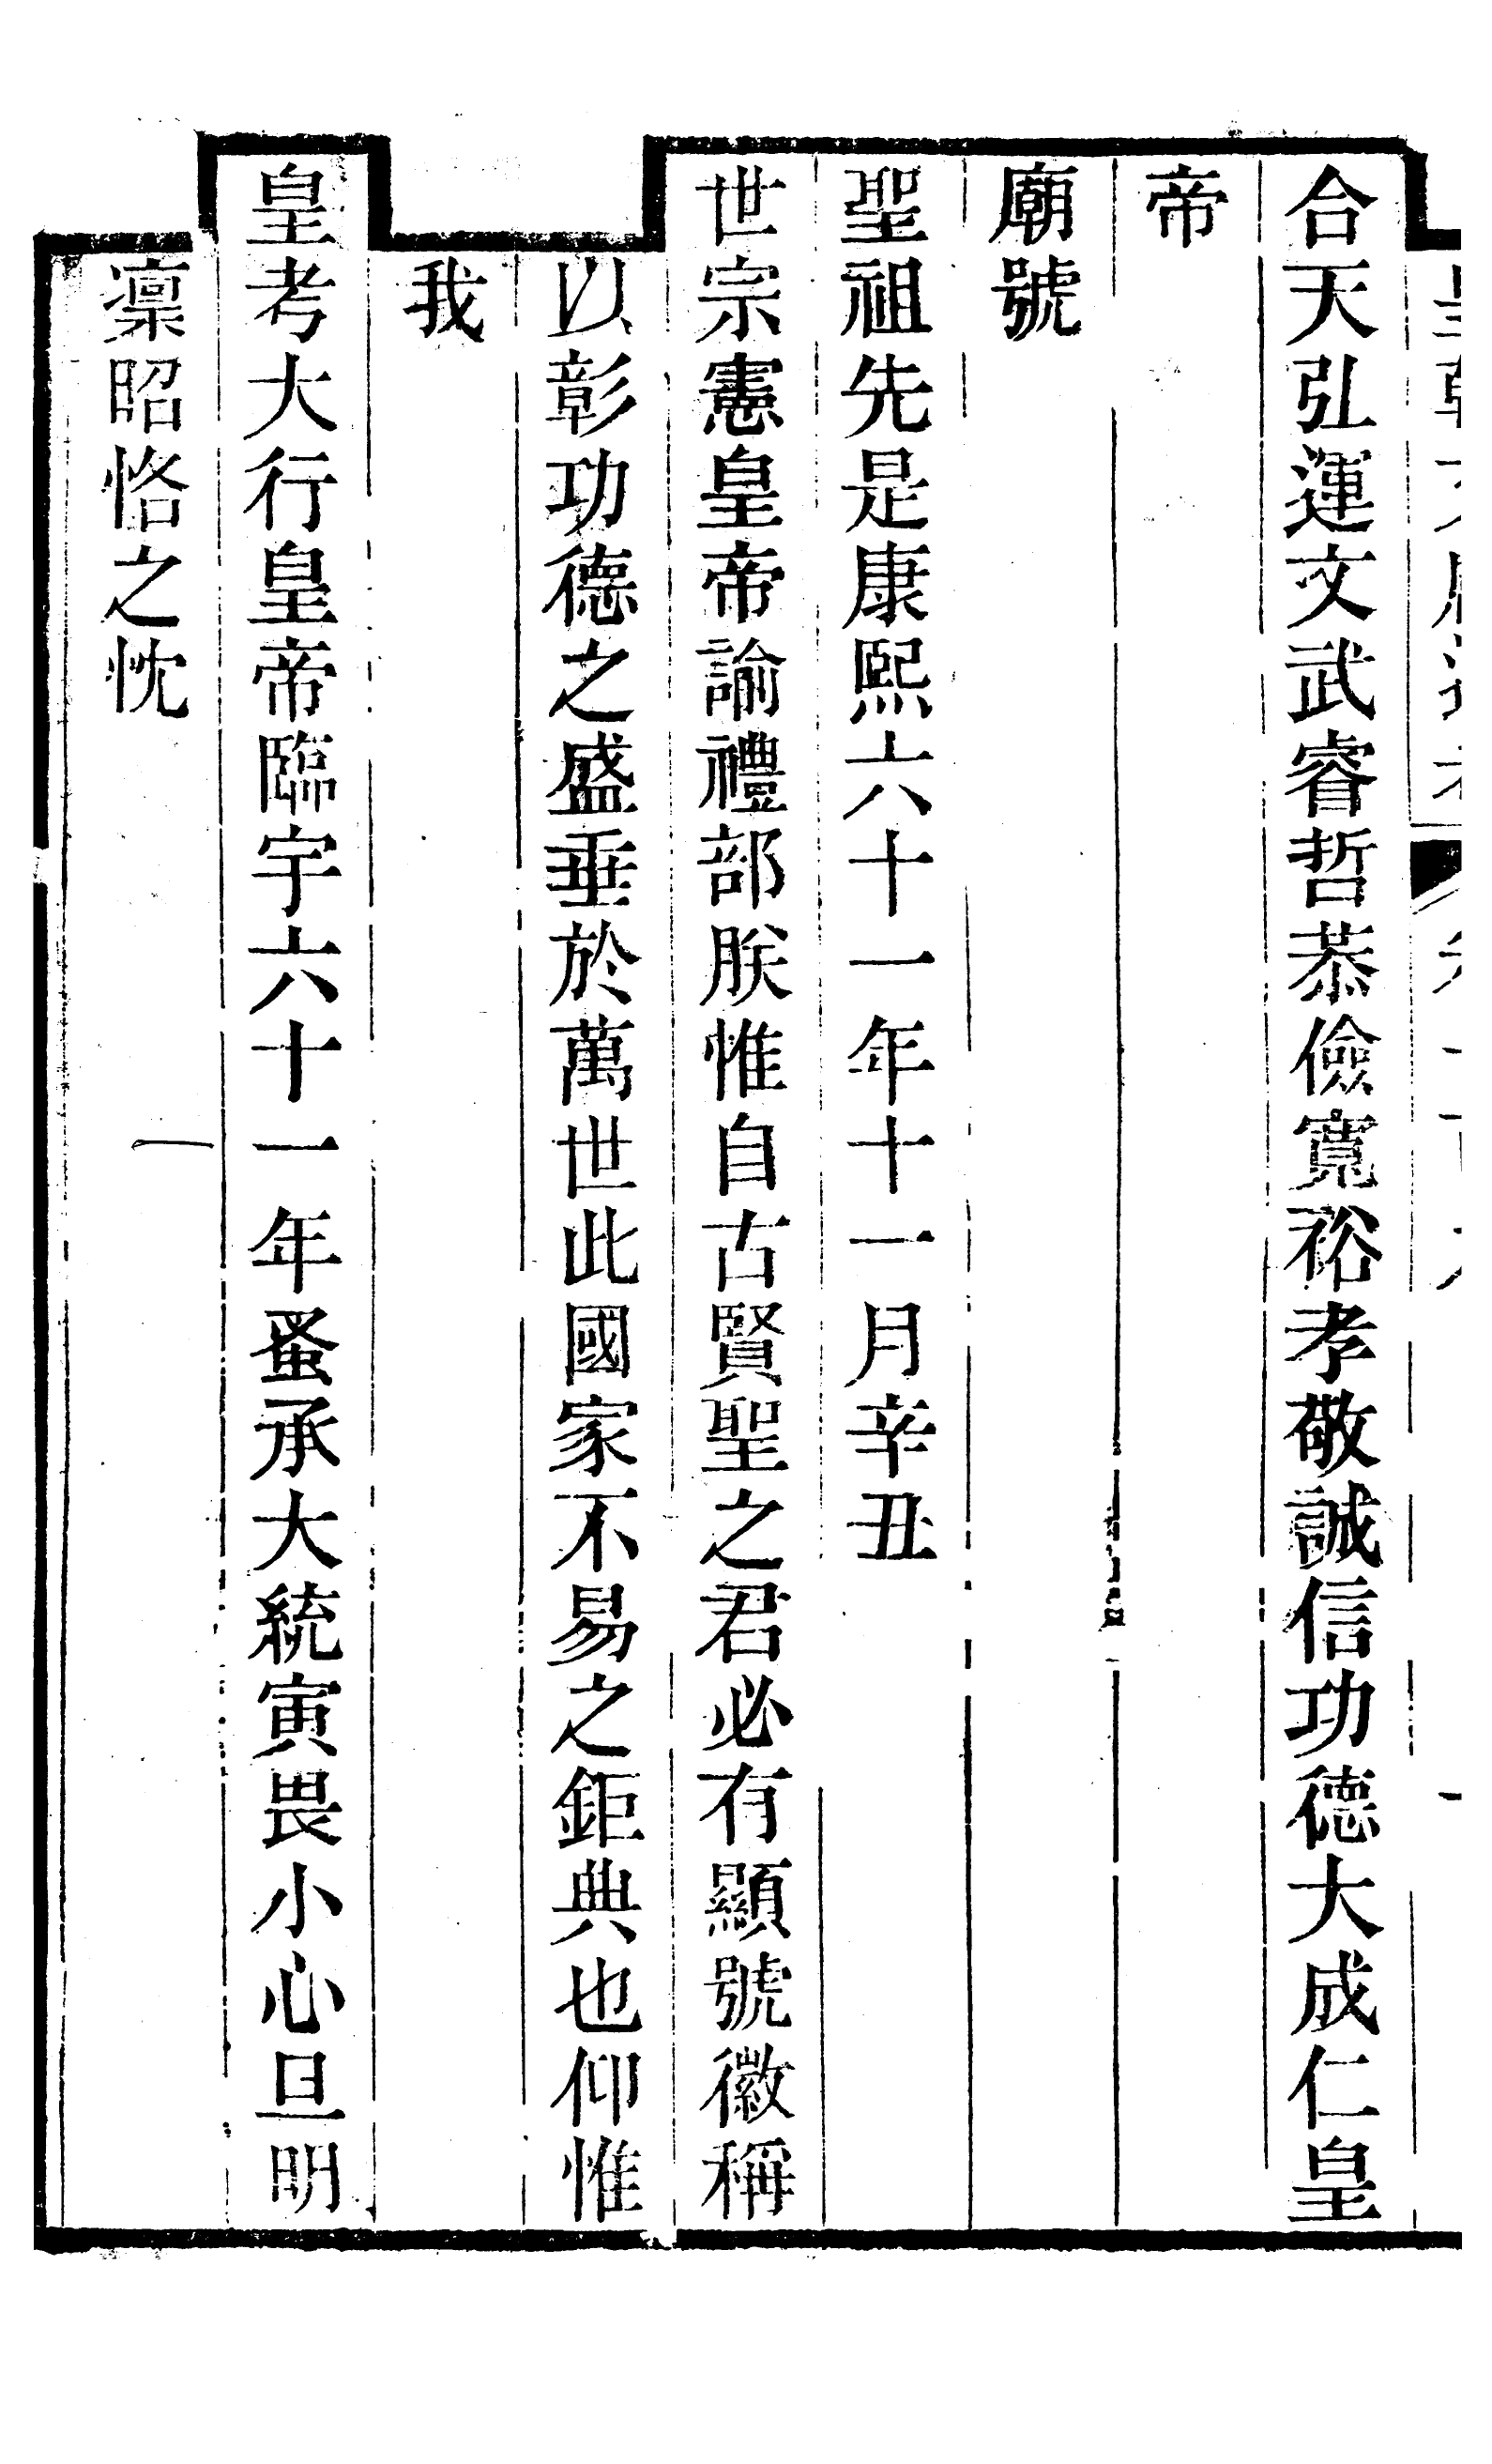 合天弘運文武睿哲恭儉寬裕孝敬誠信功德大成仁皇
帝
廟號
聖祖先是康熙六十一年十一月辛丑
世宗憲皇帝諭禮部朕惟自古賢聖之君必有顯號徽稱
以彰功德之盛垂於萬世此國家不易之鉅典也仰惟
我
皇考大行皇帝臨宇六十一年蚤承大統寅畏小心旦明
凜昭恪之忱